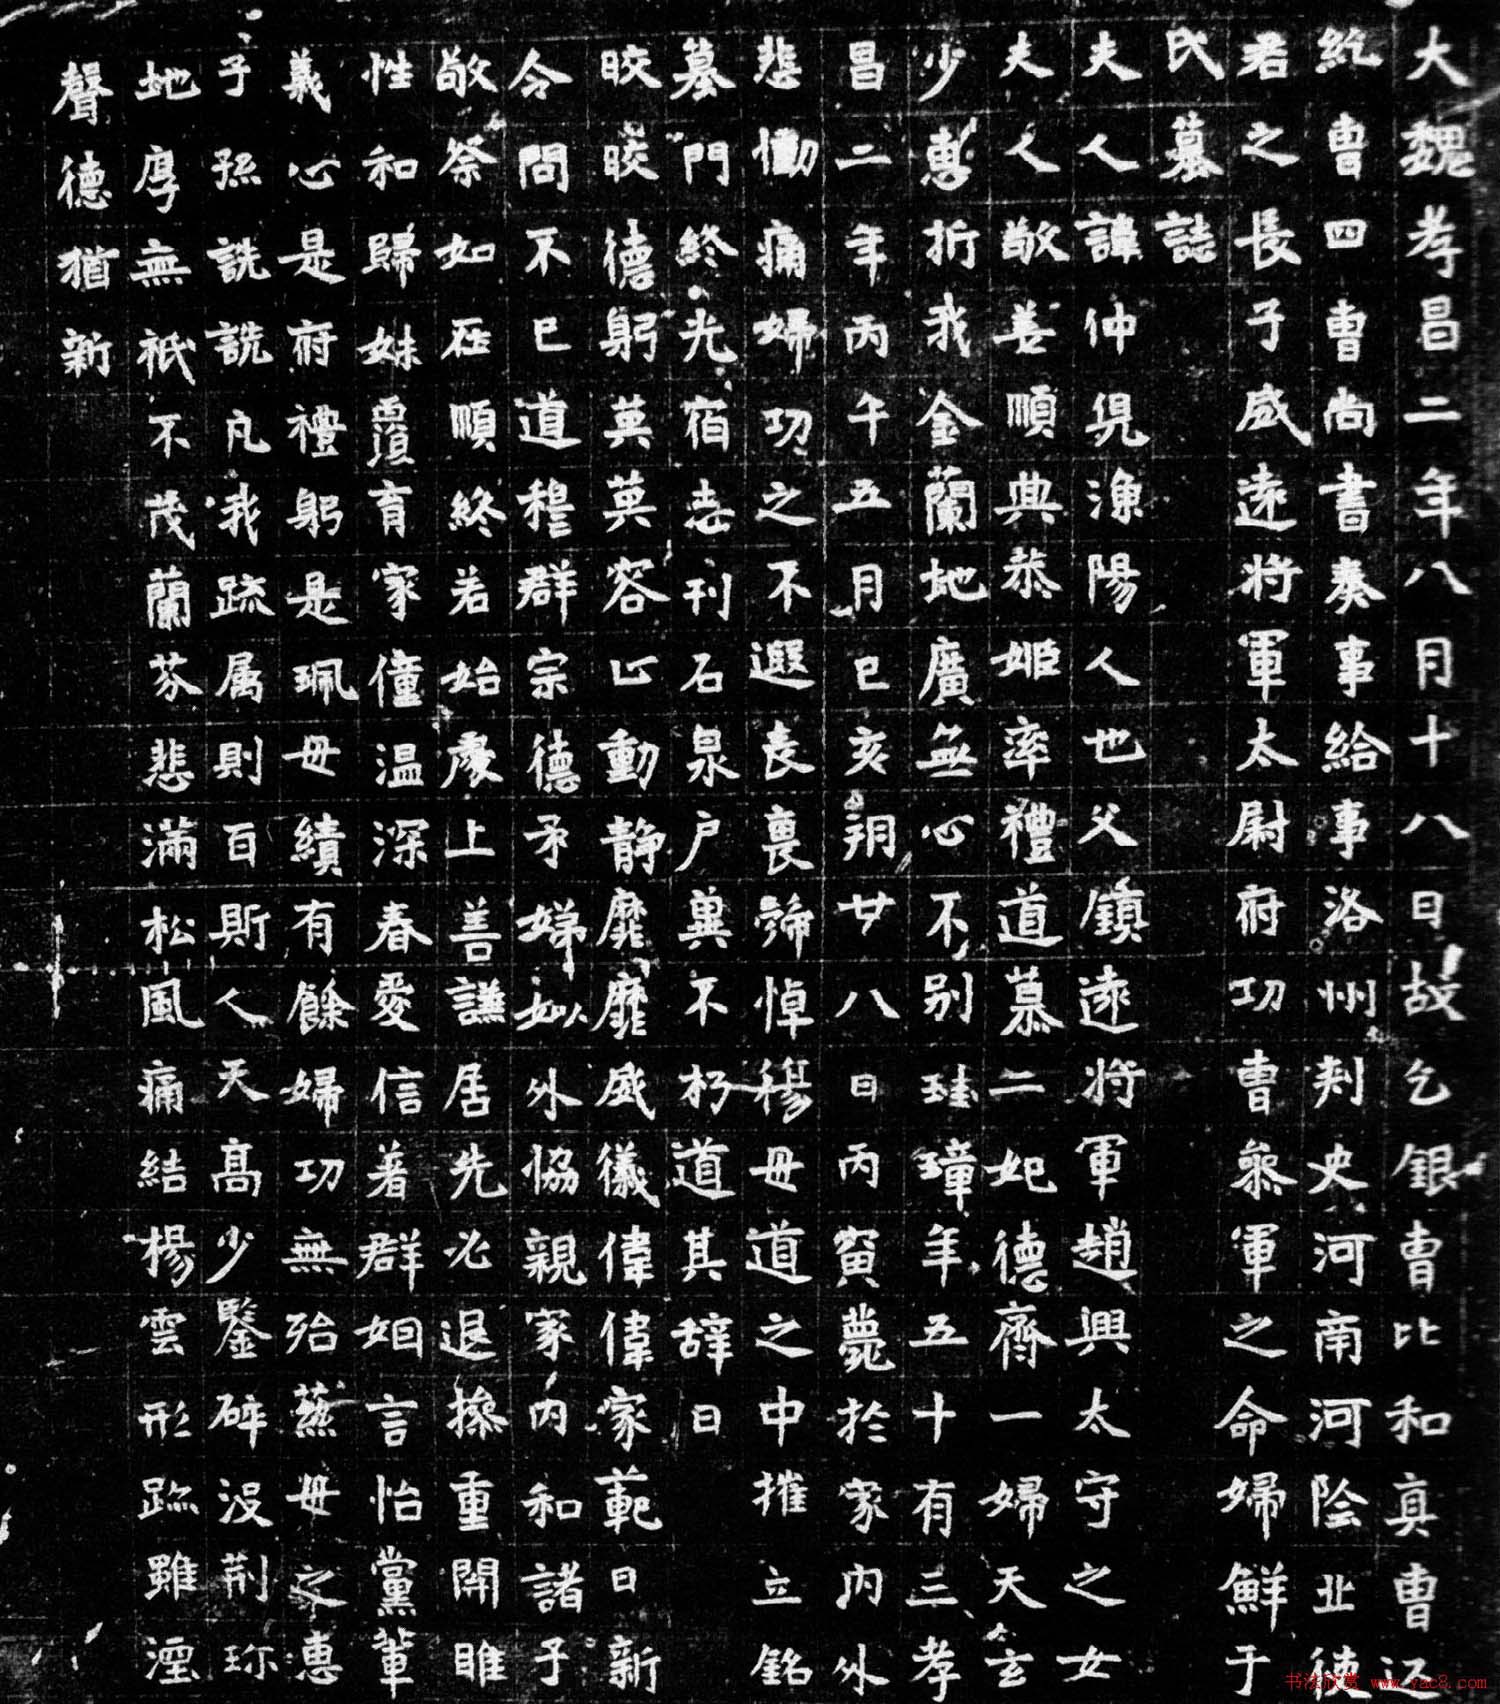 大魏孝昌二年八月十八日故乞銀曹比和真曹
紇曹四曹尚書奏事給事洛州刺史河南河陰北
君之長子威遠將軍太尉府功曹叅軍之命婦鮮于
氏墓誌
夫人諱仲兒漁陽人也父鎮遠將軍趙興太守之女
夫人敬姜順典恭姬率禮道慕二妃德齊一婦天玄
少惠折我金蘭地廣無心不別珪璋年五十有三孝
昌二年丙午五月己亥朔廿八日丙寅薨於家內外
悲慟痛婦功之不遐喪裹號悼穆母道之中摧立銘
墓門終光宿志刊石泉戶冀不朽道其辞曰
晈晈德躬英英容止動静靡靡威儀偉偉家範日新
令問不已道穆群宗德矛娣姒外協親家內和諸子
敬祭如在順終若始處上善謙居先必退搽重開睢
性和歸妹覆育家僮温深春愛信著群姻言怡黨輩
義心是府禮躬是珮母績有餘婦功無殆蒸母之惠
子孫詵詵凡我疏属則百斯人天髙少鑒碎沒荆珎
地厚無祇不茂蘭芬悲滿松風痛結楊雲形跡雖湮
聲德猶新
书法欣赏 www.yac8.com